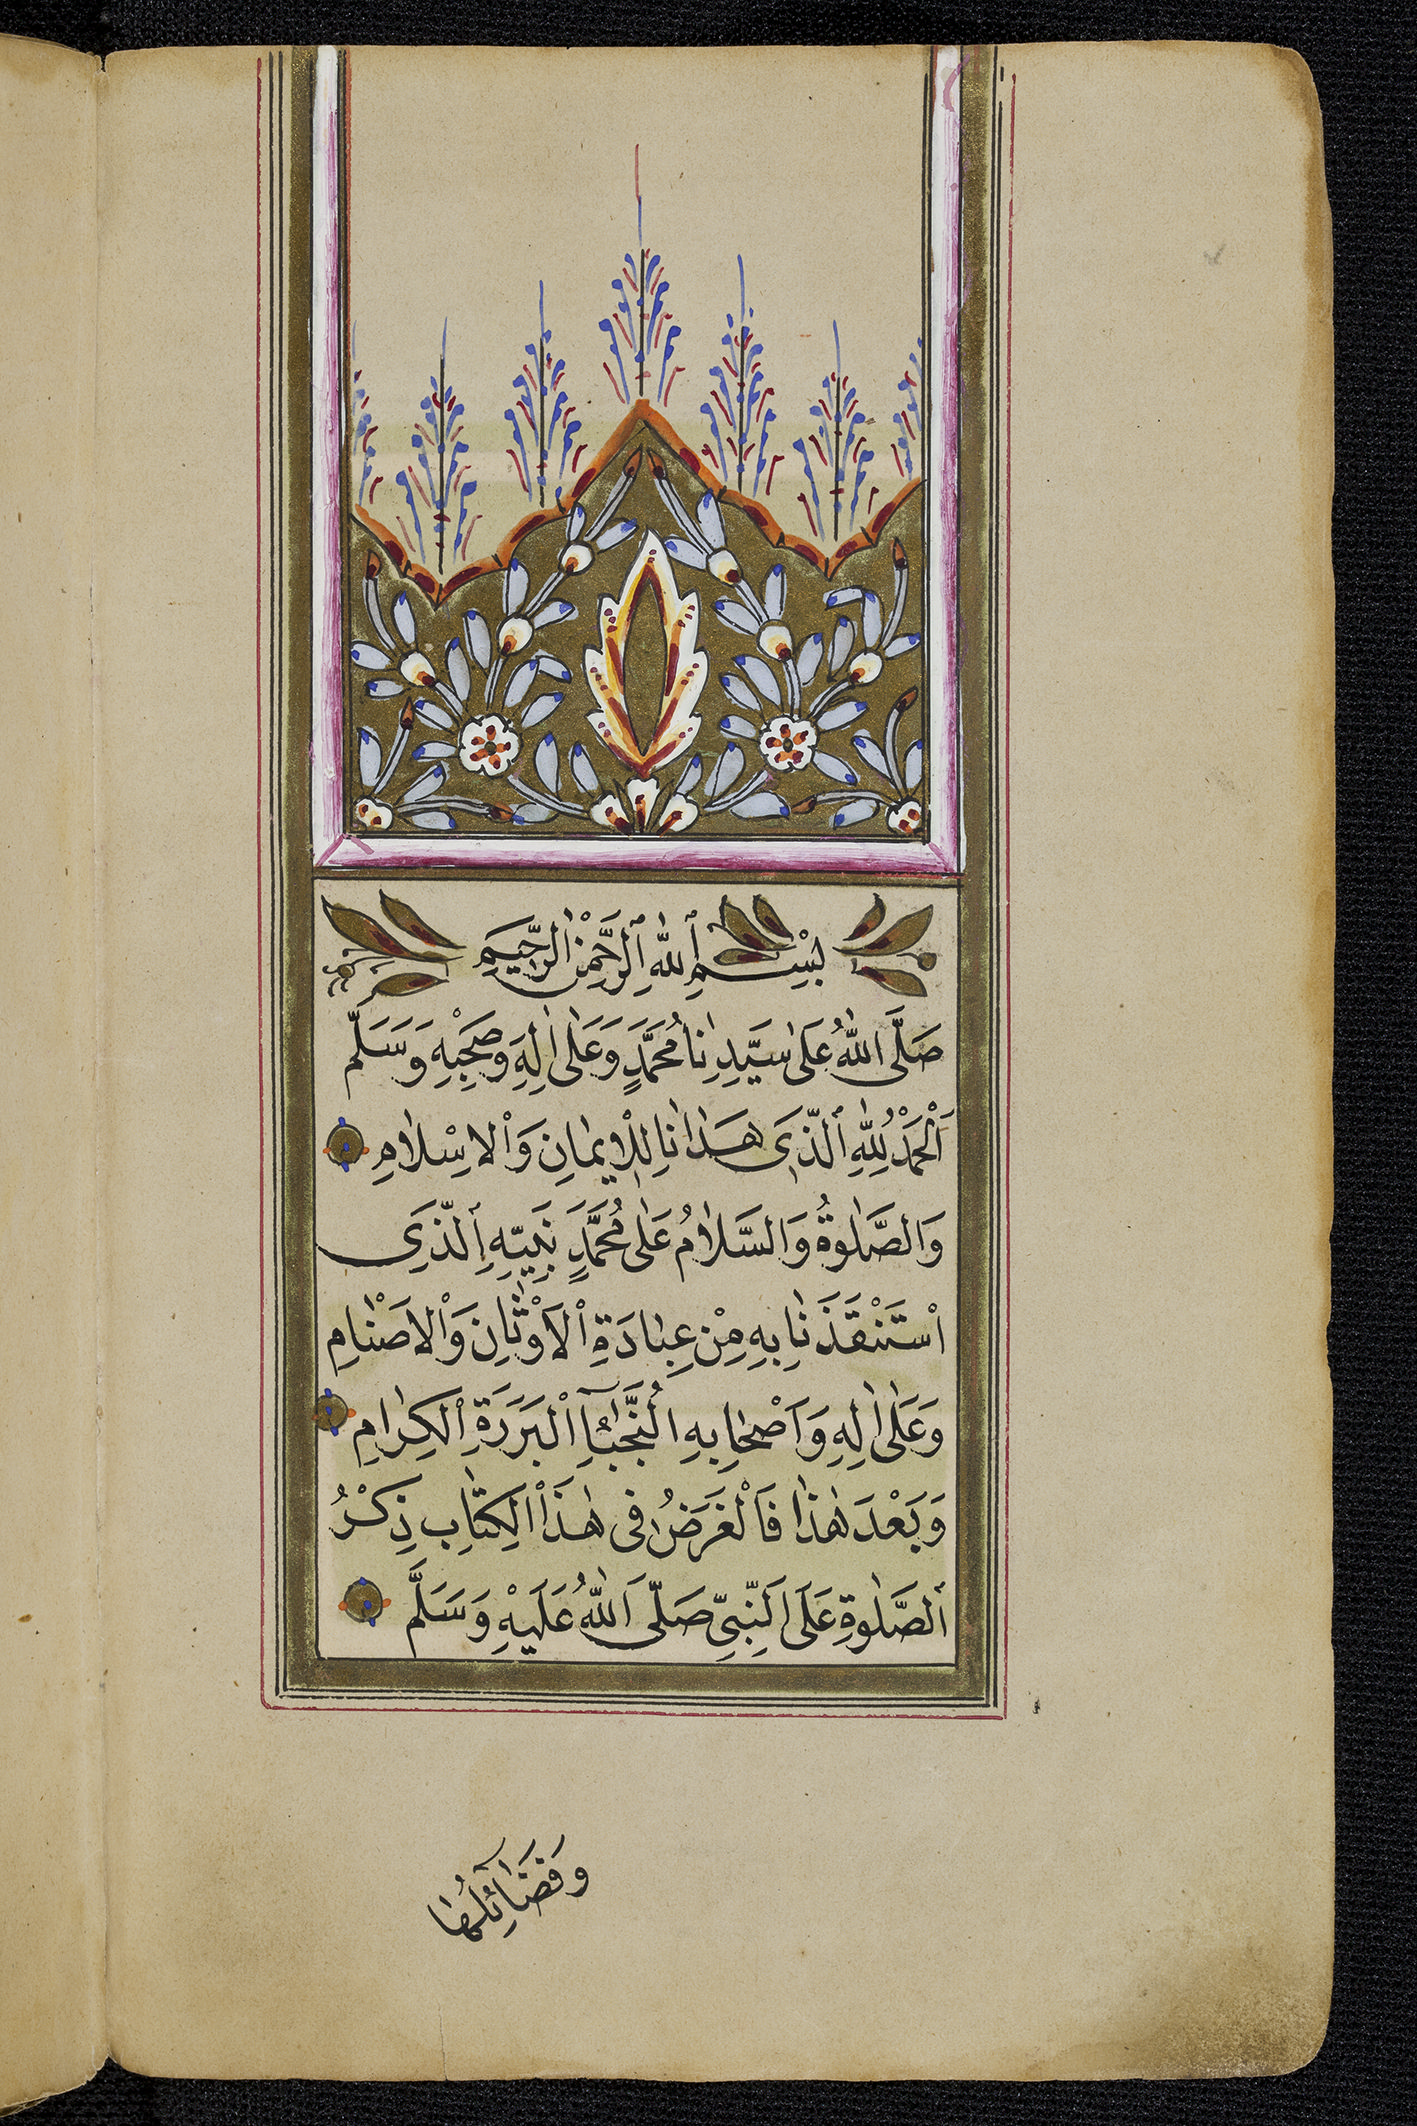 بِسْمِ ٱللّٰهِ ٱلرَّحْمٰنِ ٱلرَّحِيمِ
صَلَّى اللّٰهُ عَلٰى سَيِّدِنَا مُحَمَّدٍ وَعَلٰى اٰلِهِ وَصَحْبِهِ وَسَلَّمَ
اَلْحَمْدُ لِلّٰهِ ٱلَّذِى هَدَانَا لِلْاِيمَانِ وَٱلْاِسْلَامِ
وَالصَّلٰوةُ وَالسَّلَامُ عَلٰى مُحَمَّدٍ نَبِيِّهِ ٱلَّذِى
اسْتَنْقَذَنَا بِهِ مِنْ عِبَادَةِ ٱلْاَوْثَانِ وَٱلْاَصْنَامِ
وَعَلٰى اٰلِهِ وَاَصْحَابِهِ النُّجَبَآءِ ٱلْبَرَرَةِ ٱلْكِرَامِ
وَبَعْدَ هٰذَا فَالْغَرَضُ فِى هٰذَا ٱلْكِتَابِ ذِكْرُ
ٱلصَّلٰوةِ عَلَى النَّبِىِّ صَلَّى اللّٰهُ عَلَيْهِ وَسَلَّمَ
وَفَضَآئِلُهَا